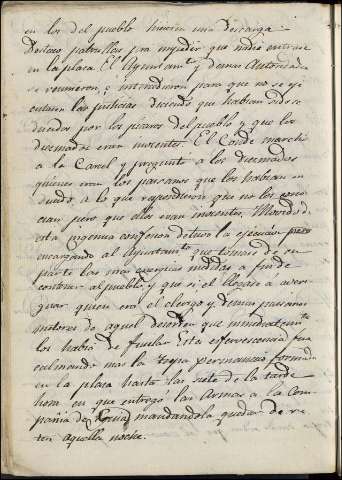 en los del pueblo hicieron una descarga
Destaco patrullas pra impedir que nadie entrase
en la plaza. El Ayuntamto y demas Autoridades
se reunieron, e intercedieron para que no se eje
cutaran las justicias diciendo que habian sido se
ducidos por los picaros del pueblo y que los
diezmados eran inocentes. El Conde marchó
a la Carcel y preguntó a los diezmados
quienes eran los paisanos que los habian se
ducido, a lo que respondieron que no los cono
cian pero que ellos eran inocentes. Movido de
esta ingenua confesion detuvo la ejecucion pero
encargando al Ayuntamto que tomase de su
parte las mas energicas medidas a fin de
contener al pueblo, y que si el llegase a averi
guar quien era el clerigo y demas paisanos
motores de aquel desorden que inmediatamte
los habia de fusilar. Esta efervescencia fue
calmando mas la tropa permanecio formada
en la plaza hasta las siete de la tarde
hora en que entregó las Armas a la Com
pañia de mandandola quedar de re
ten aquella noche.